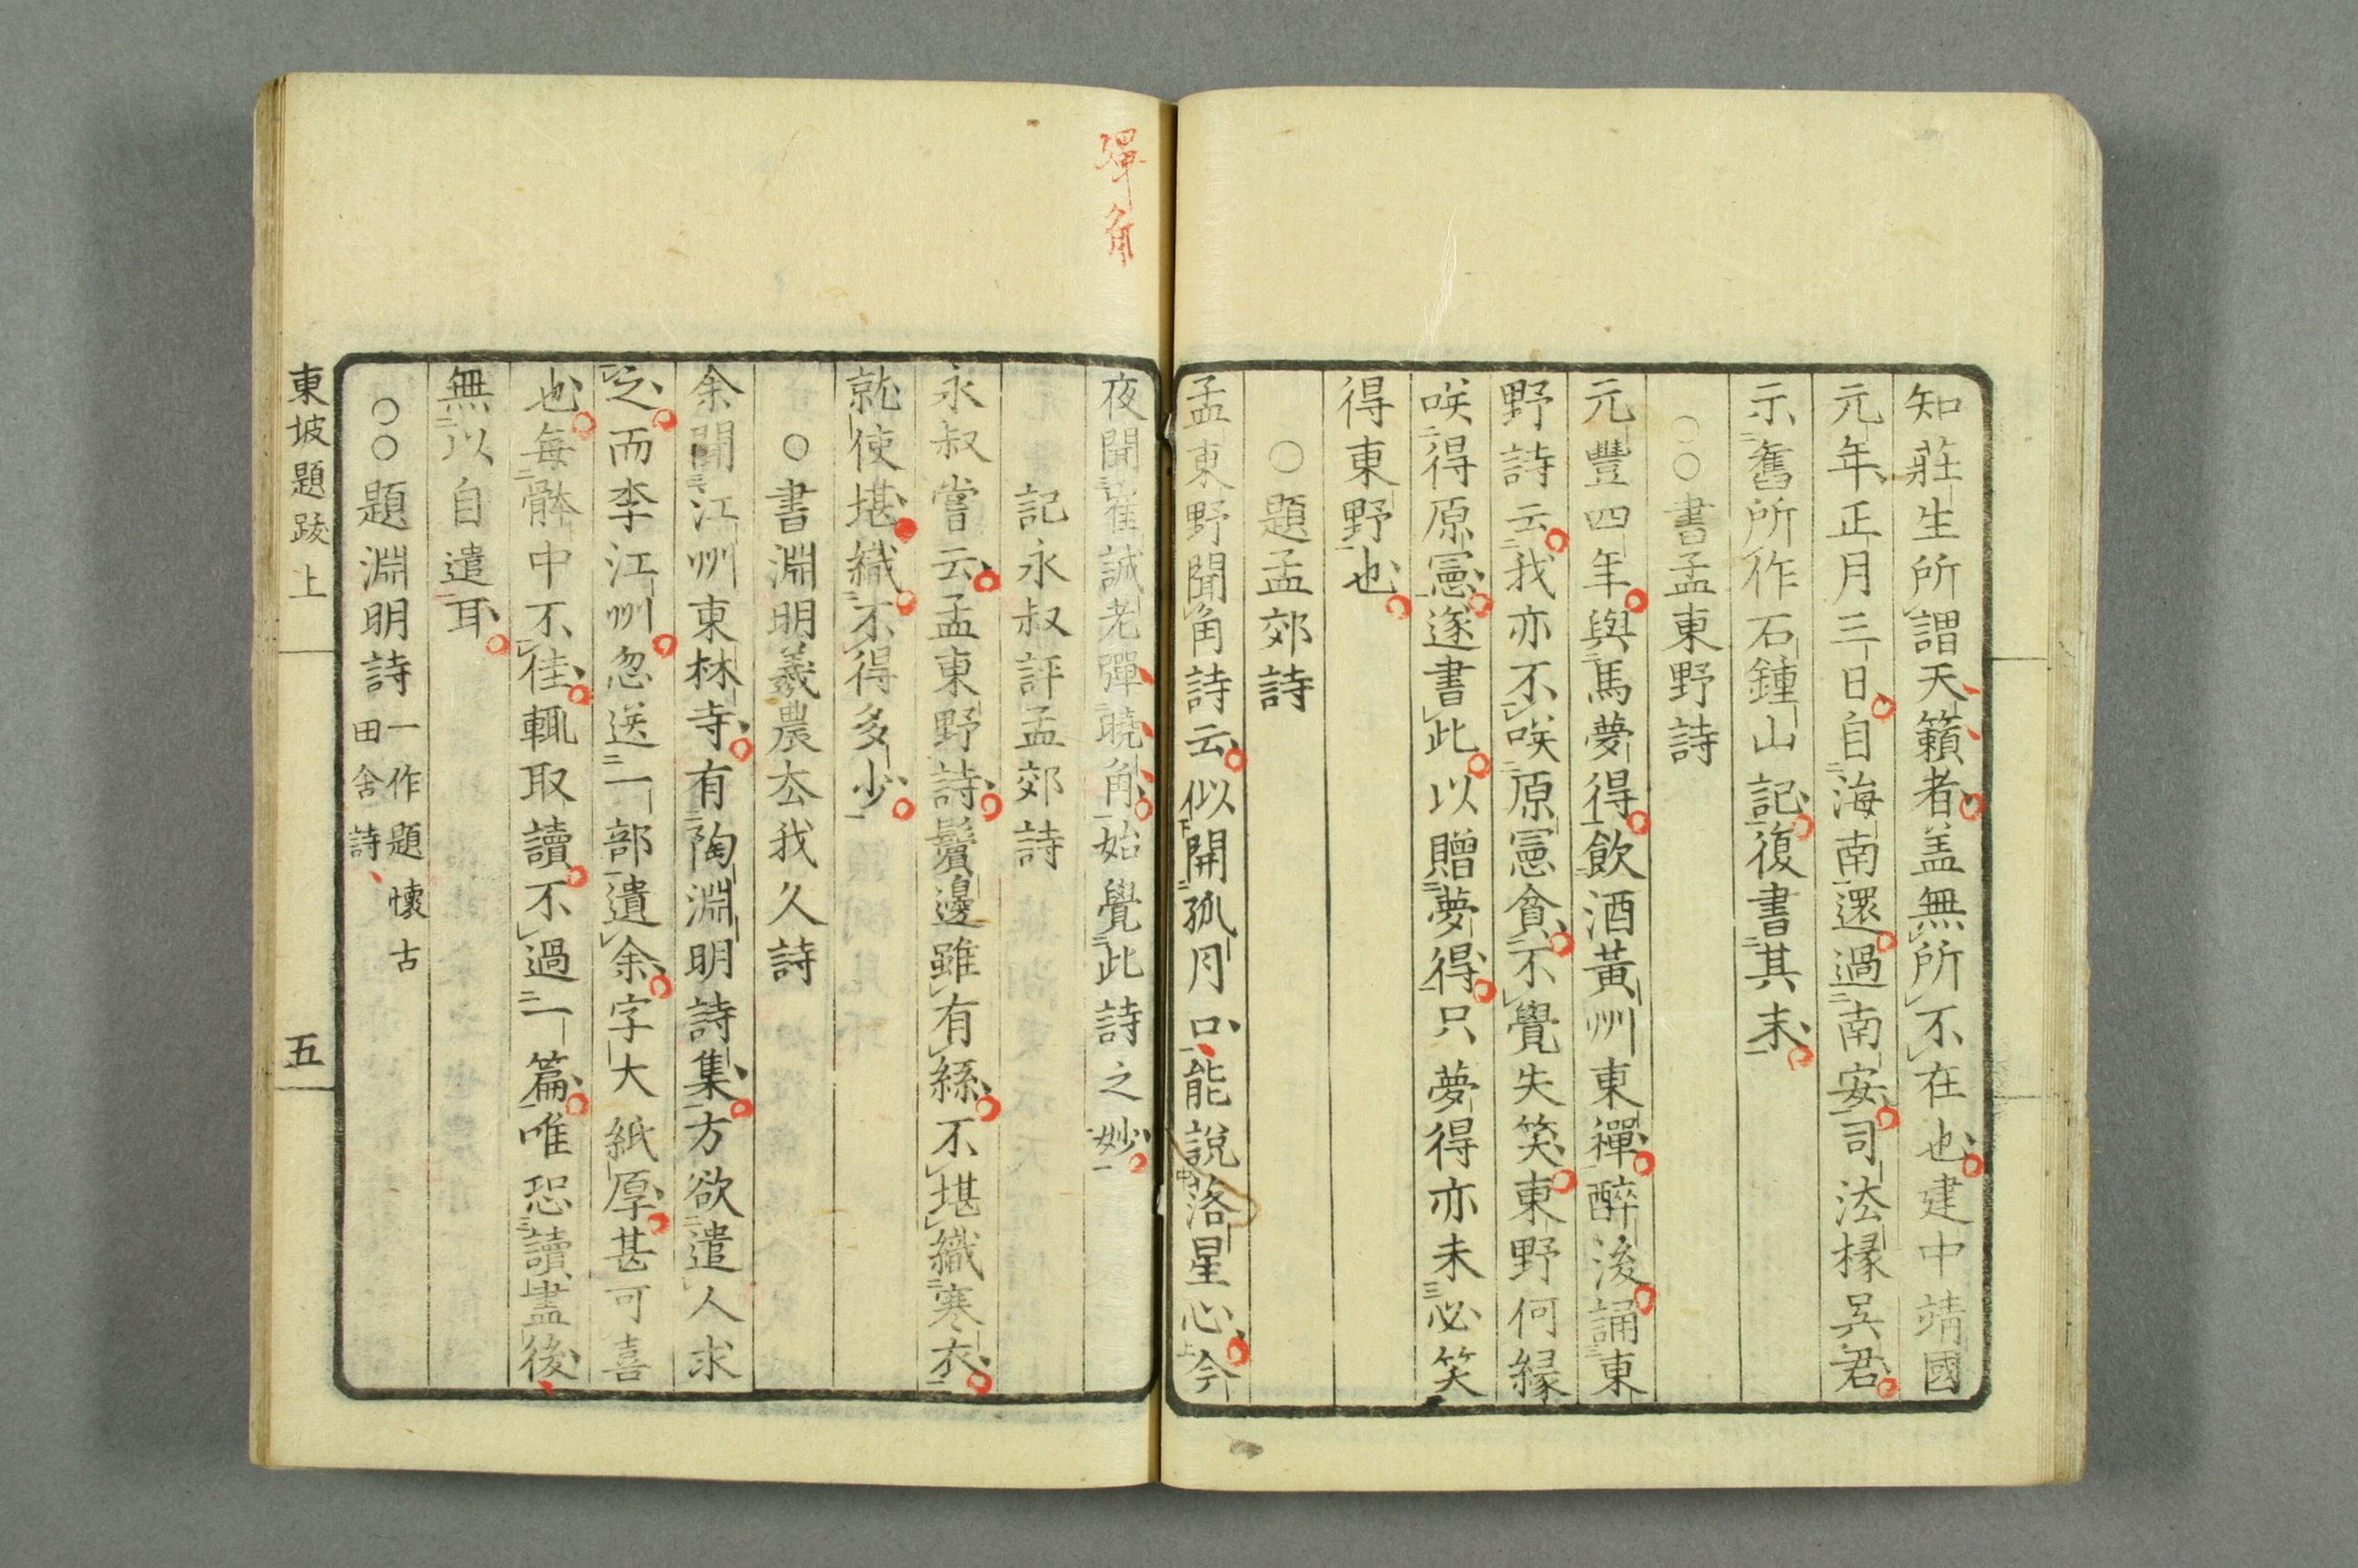 知莊生所謂天籟者盖無所不在也建中靖國
元年正月三日自海南還過南安司法掾吳君
示舊所作石鍾山記復書其末
〇〇書孟東野詩
元豐四年與馬夢得飲酒黃州東禪醉後誦東
野詩云我亦不咲原憲貧不覺失笑東野何緣
咲得原憲遂書此以贈夢得只夢得亦未必笑
得東野也
〇題孟郊詩
孟東野聞角詩云似開孤月口能說落星心今
彈角
夜聞崔誠老彈曉角始覺此詩之妙
記永叔評孟郊詩
永叔嘗云孟東野詩鬢邊雖有絲不堪織寒衣
就使堪織不得多少
〇書淵明羲農去我久詩
余聞江州東林寺有陶淵明詩集方欲遣人求
之而李江州忽送一部遺余字大紙厚甚可喜
也每體中不佳輒取讀不過一篇唯恐讀盡後
無以自遣耳
〇〇題淵明詩一作題懷古田舍詩
東坡題跋上 五